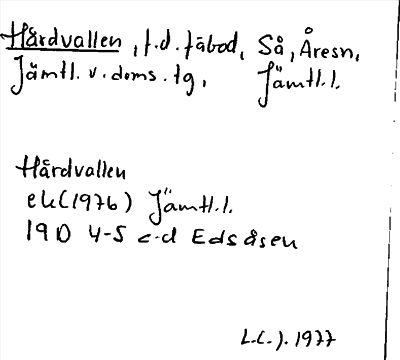 Hårdvallen, f.d. fäbod, Så, Åresn,
Jämtl. v. doms. tg, Jämtl.l.
Hårdvallen
ek(1976) Jämtl.l.
19D 4-5 c-d Edsåsen
L.C.J. 1977